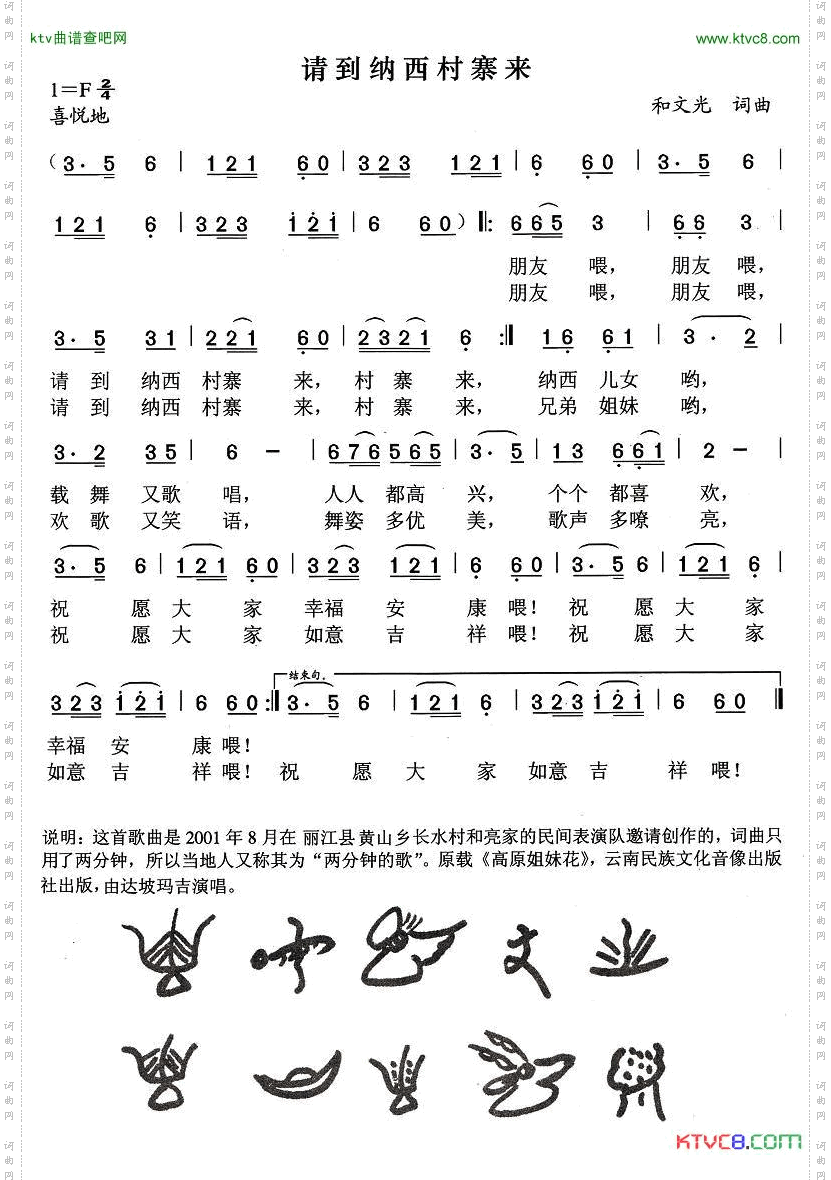 ktv曲谱查吧网
www.ktvc8.com
请到纳西村寨来
1=F 2/4
喜悦地
和文光 词曲
(3· 5 6 | 1 2 1 6 0 | 3 2 3 1 2 1 | 6 6 0 | 3· 5 6 |
1 2 1 6 | 3 2 3 1 2 1 | 6 6 0) ‖: 6 6 5 3 | 6 6 3 |
朋友 喂, 朋友 喂,
朋友 喂, 朋友 喂,
3· 5 3 1 | 2 2 1 6 0 | 2 3 2 1 6 :‖ 1 6 6 1 | 3· 2 |
请 到 纳西 村寨 来, 村 寨 来, 纳西 儿女 哟,
请 到 纳西 村寨 来, 村 寨 来, 兄弟 姐妹 哟,
3· 2 3 5 | 6 - | 6 7 6 5 6 5 | 3· 5 | 1 3 6 6 1 | 2 - |
载 舞 又歌 唱, 人人 都高 兴, 个个 都喜 欢,
欢 歌 又笑 语, 舞姿 多优 美, 歌声 多嘹 亮,
3· 5 6 | 1 2 1 6 0 | 3 2 3 1 2 1 | 6 6 0 | 3· 5 6 | 1 2 1 6 |
祝 愿 大 家 幸福 安 康 喂! 祝 愿 大 家
祝 愿 大 家 如意 吉 祥 喂! 祝 愿 大 家
结束句。
3 2 3 1 2 1 | 6 6 0 :‖ 3· 5 6 | 1 2 1 6 | 3 2 3 1 2 1 | 6 6 0 ‖
幸福 安 康 喂!
如意 吉 祥 喂! 祝 愿 大 家 如意 吉 祥 喂!
说明: 这首歌曲是 2001 年 8 月在 丽江县 黄山乡长水村和亮家的民间表演队邀请创作的, 词曲只
用了两分钟, 所以当地人又称其为“两分钟的歌”。原载《高原姐妹花》, 云南民族文化音像出版
社出版, 由达坡玛吉演唱。
KTVC8.COM